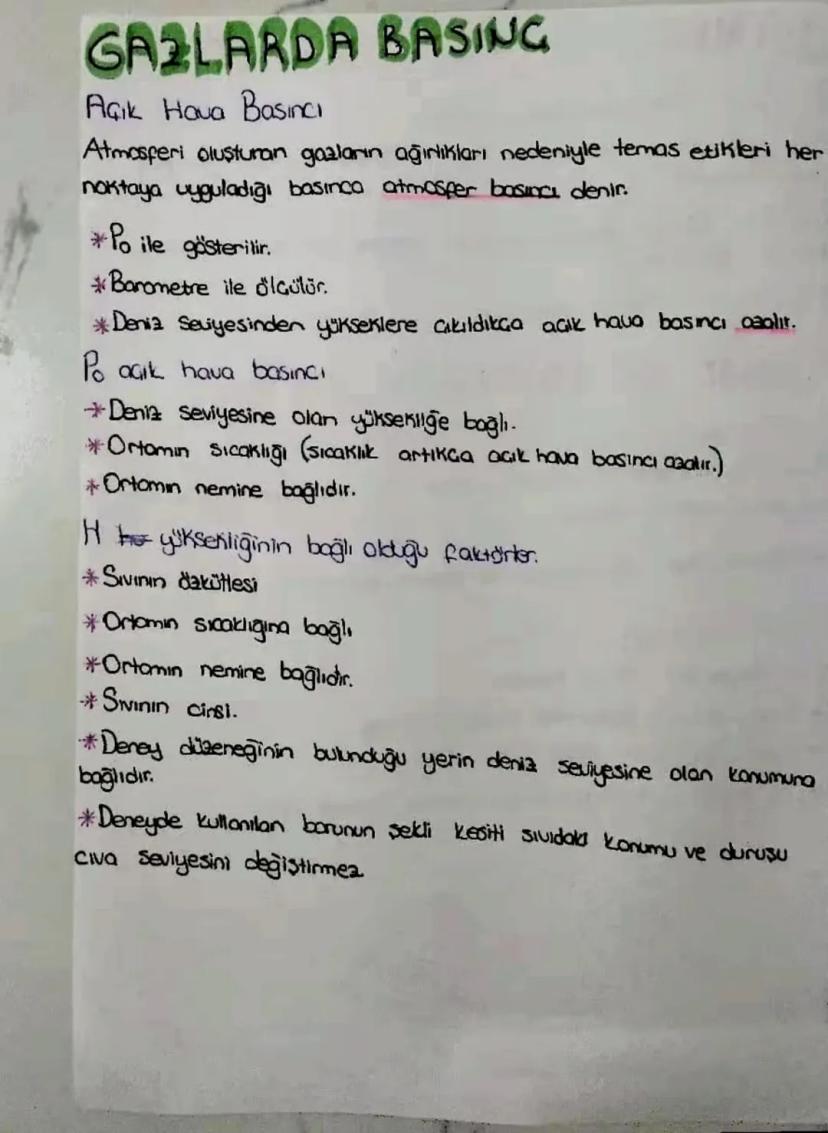 GAZLARDA BASINÇ
Açık Hava Basıncı
Atmosferi oluşturan gazların ağırlıkları nedeniyle temas etikleri her
noktaya uyguladığı basınca atmosfer basıncı denir.
* Po ile gösterilir.
* Barometre ile ölçülür.
* Deniz seviyesinden yükseklere çıkıldıkça açık hava basıncı azalır.
Po açık hava basıncı
* Deniz seviyesine olan yüksekliğe bağlı.
* Ortamın sıcaklığı (sıcaklık artıkça açık hava basıncı azalır.)
* Ortamın nemine bağlıdır.
H yüksekliğinin bağlı olduğu faktörler.
* Sıvının özkütlesi
* Ortamın sıcaklığına bağlı
* Ortamın nemine bağlıdır.
* Sıvının cinsi.
* Deney düzeneğinin bulunduğu yerin deniz seviyesine olan konumuna
bağlıdır.
* Deneyde kullanılan borunun şekli kesiti sıvıdaki konumu ve duruşu
cıva seviyesini değiştirmez